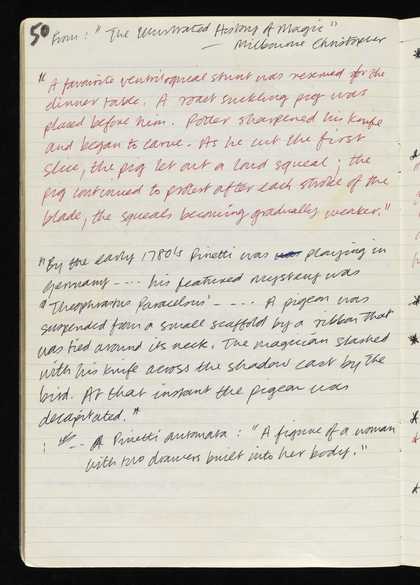 50 From: "The Illustrated History of Magic"
— Milbourne Christopher
"A favourite ventriloquial stunt was reserved for the
dinner table. A roast suckling pig was
placed before him. Potter sharpened his knife
and began to carve. As he cut the first
slice, the pig let out a loud squeal; the
pig continued to protest after each stroke of the
blade, the squeals becoming gradually weaker."
"By the early 1780's Pinetti was playing in
Germany ---- his featured mystery was
"Theophrastus Paracelsus' - --- . A pigeon was
suspended from a small scaffold by a ribbon that
was tied around its neck. The magician slashed
with his knife across the shadow cast by the
bird. At that instant the pigeon was
decapitated."
A Pinetti automata: "A figure of a woman
with two drawers built into her body."